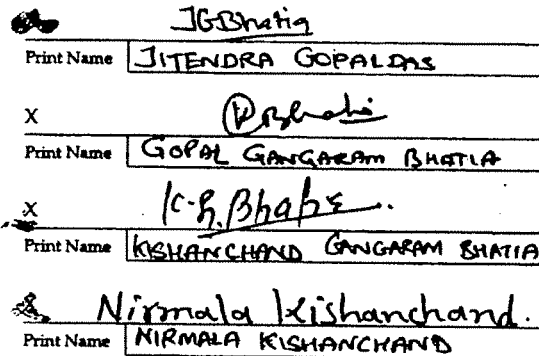 JGBhatia
Print Name JITENDRA GOPALDAS
X
Print Name GOPAL GANGARAM BHATIA
X K.G.Bhatia.
Print Name KISHANCHAND GANGARAM BHATIA
X Nirmala Kishanchand.
Print Name NIRMALA KISHANCHAND